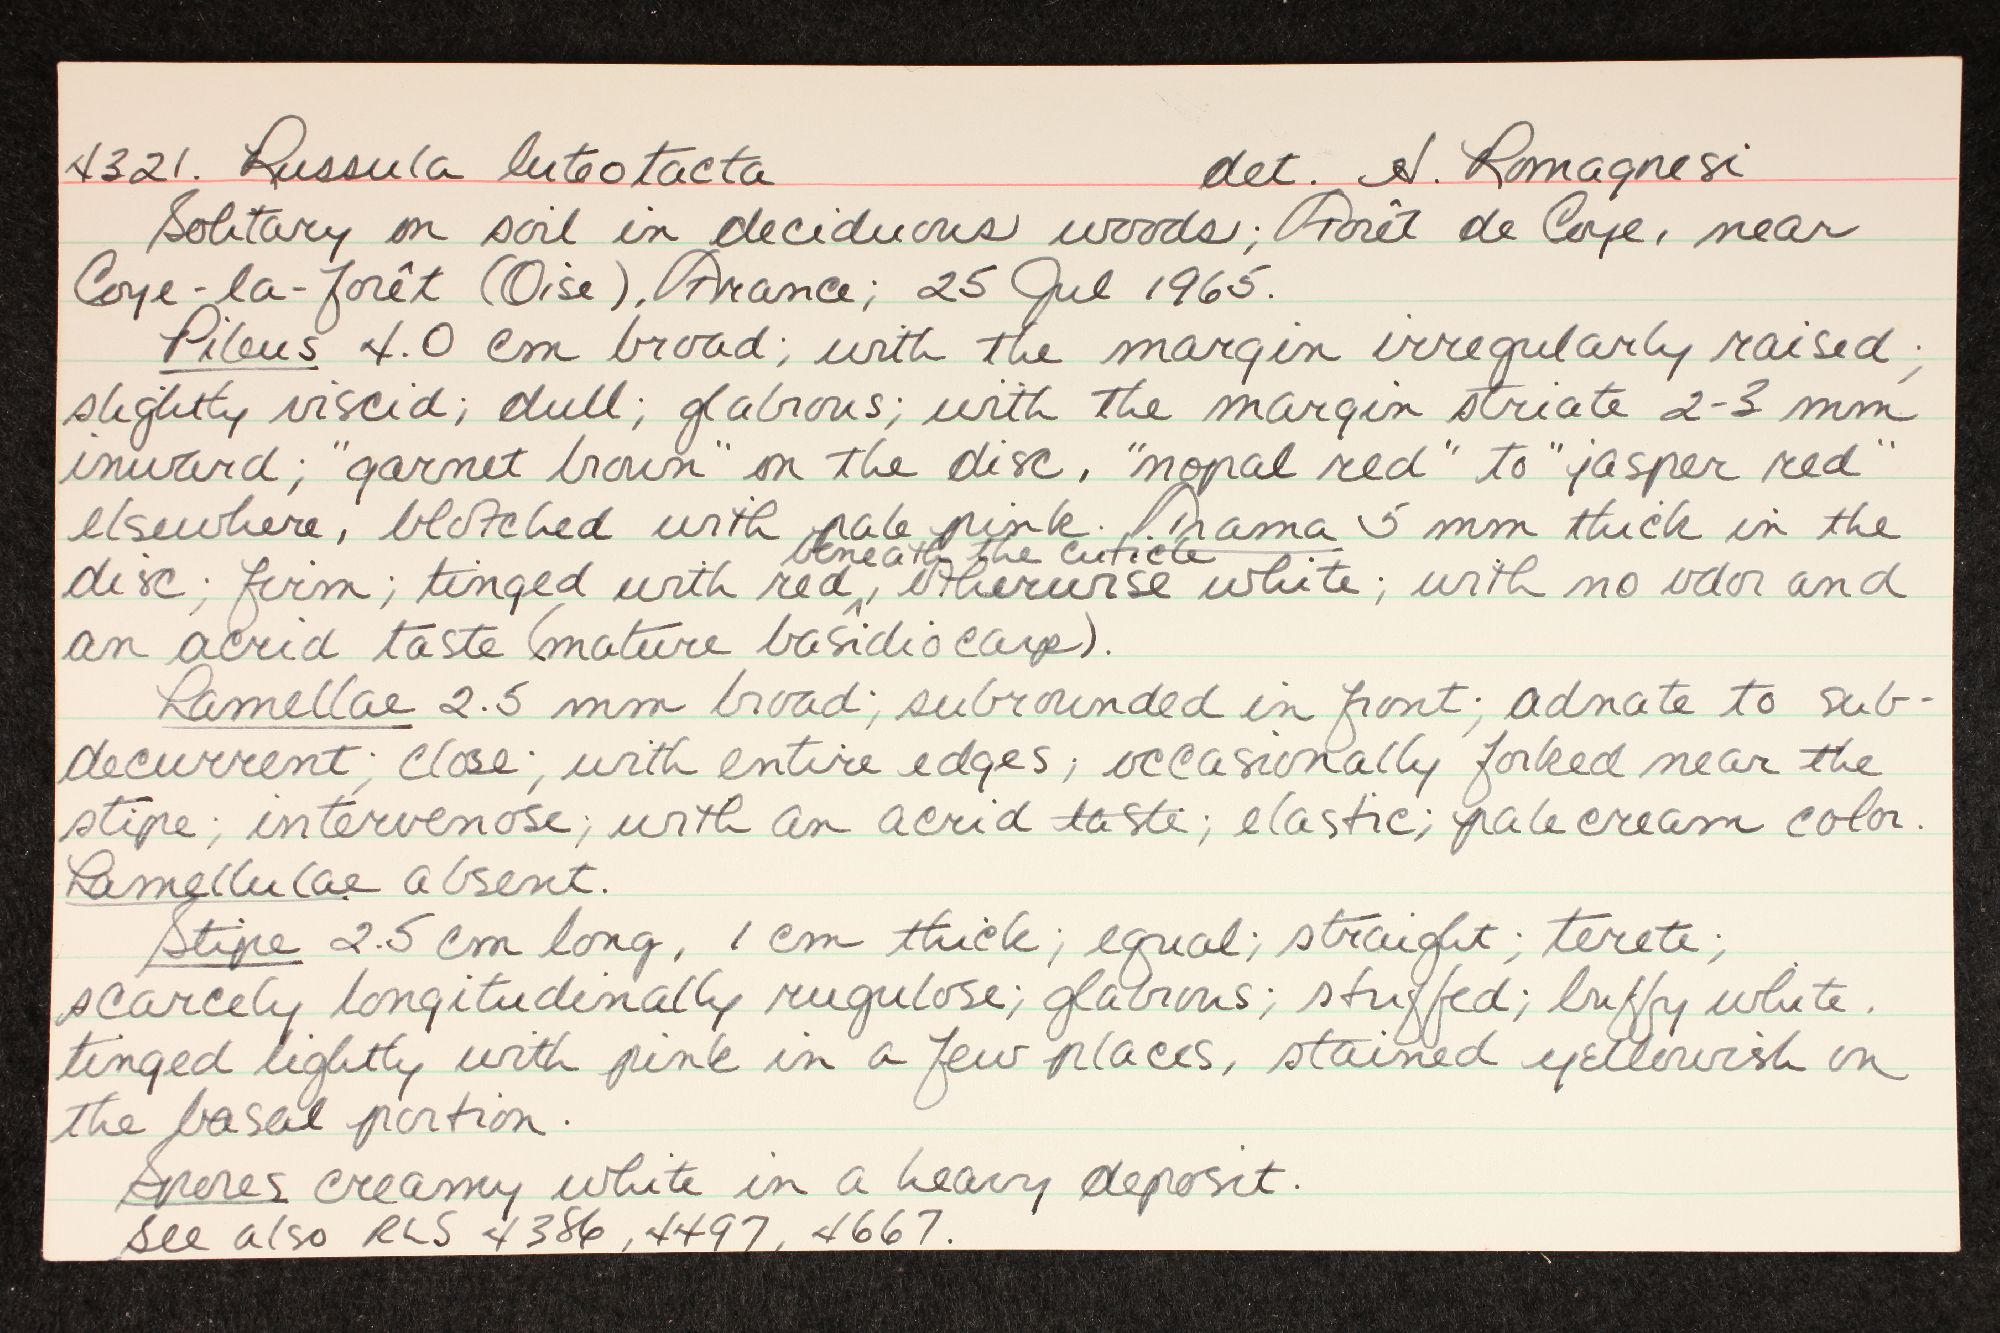 4321. Russula luteotacta det. H. Romagnesi
Solitary on soil in deciduous woods; Forêt de Coye, near
Coye-la-forêt (Oise), France; 25 Jul 1965.
Pileus 4.0 cm broad; with the margin irregularly raised;
slightly viscid; dull; glabrous; with the margin striate 2-3 mm
inward; "garnet brown" on the disc, "nopal red" to "jasper red"
elsewhere, blotched with pale pink. Trama 5 mm thick in the
beneath the cuticle
disc; firm; tinged with red ^, otherwise white; with no odor and
an acrid taste (mature basidiocarp).
Lamellae 2.5 mm broad; subrounded in front; adnate to sub-
decurrent; close; with entire edges; occasionally forked near the
stipe; intervenose; with an acrid taste; elastic; pale cream color.
Lamellulae absent.
Stipe 2.5 cm long, 1 cm thick; equal; straight; terete;
scarcely longitudinally rugulose; glabrous; stuffed; buffy white,
tinged lightly with pink in a few places, stained yellowish on
the basal portion.
Spores creamy white in a heavy deposit.
See also RLS 4386, 4497, 4667.